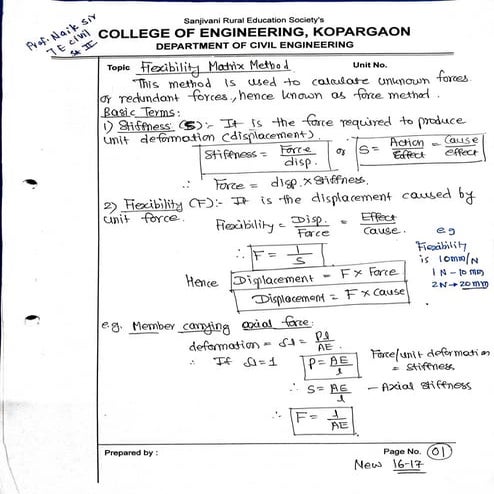 Prof. Naik Sir
TE Civil
Sanjivani Rural Education Society's
COLLEGE OF ENGINEERING, KOPARGAON
DEPARTMENT OF CIVIL ENGINEERING
Topic Flexibility Matrix Method Unit No.
This method is used to calculate unknown forces
or redundant forces, hence known as force method.
Basic Terms:
1) Stiffness (S):- It is the force required to produce
unit deformation (displacement)
Stiffness = Force/disp. or S = Action/Effect = Cause/effect
∴ Force = disp. × Stiffness.
2) Flexibility (F):- It is the displacement caused by
unit force.
Flexibility = Disp./Force = Effect/Cause.
∴ F = 1/S
eg
Flexibility
is 10mm/N
1N - 10mm
2N → 20mm
Hence Displacement = F × Force
Displacement = F × Cause
eg. Member carrying axial force:
deformation = δl = Pl/AE
∴ If δl = 1 P = AE/l Force/unit deformation
= Stiffness
∴ S = AE/l - Axial Stiffness
∴ F = l/AE
Prepared by : Page No. 01
New 16-17